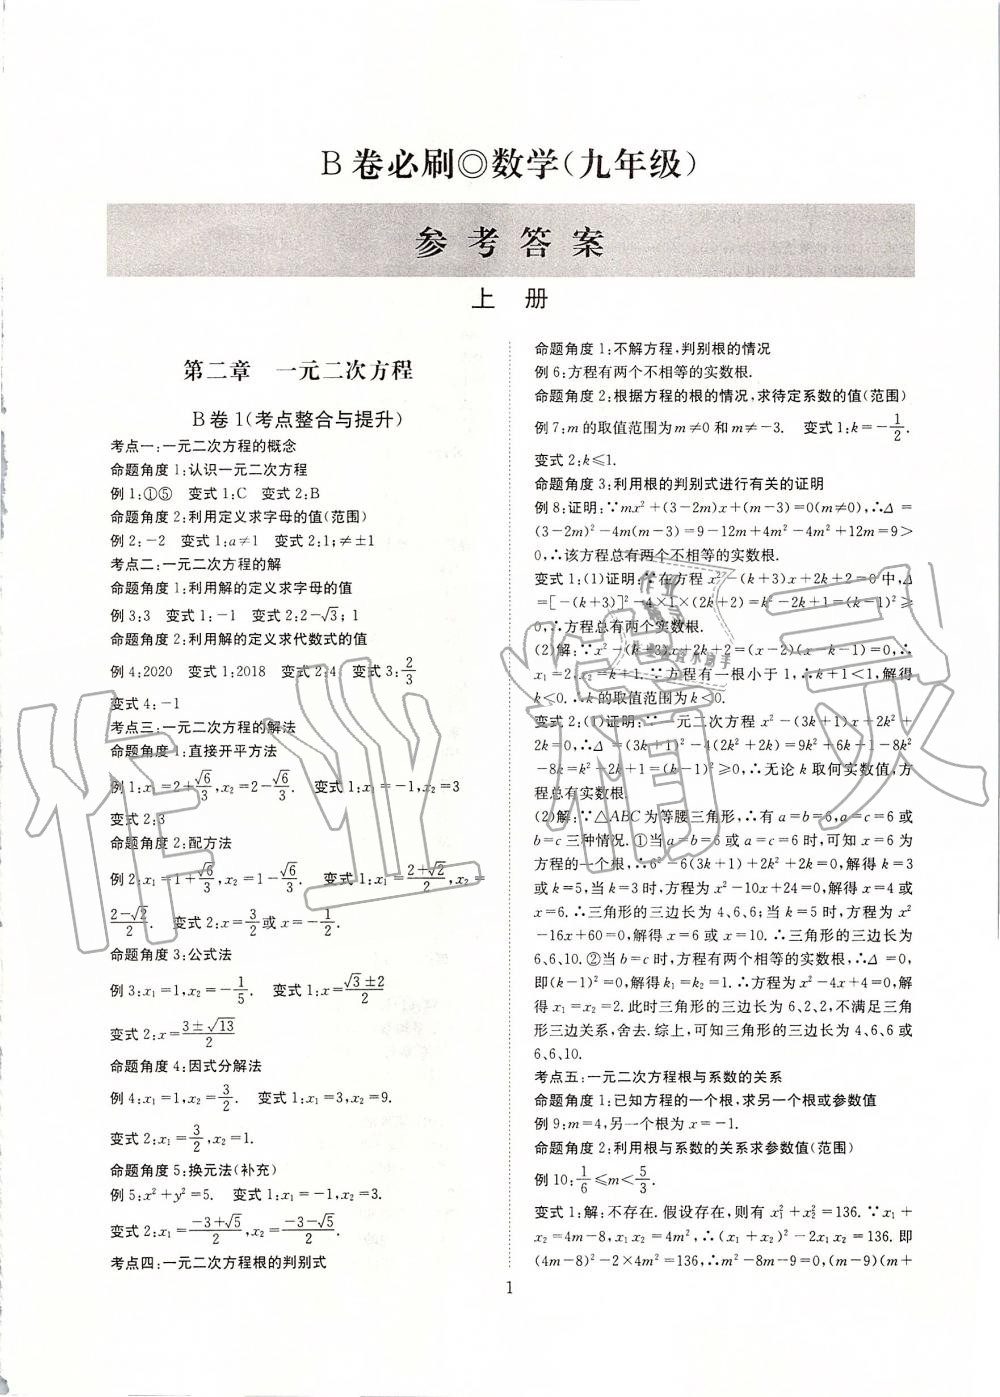 B卷必刷◎数学(九年级)
参考答案
上 册
第二章 一元二次方程
B卷1(考点整合与提升)
考点一:一元二次方程的概念
命题角度1:认识一元二次方程
例1:①⑤ 变式1:C 变式2:B
命题角度2:利用定义求字母的值(范围)
例2:-2 变式1:a≠1 变式2:1;≠±1
考点二:一元二次方程的解
命题角度1:利用解的定义求字母的值
例3:3 变式1:-1 变式2:2-√3;1
命题角度2:利用解的定义求代数式的值
例4:2020 变式1:2018 变式2:4 变式3:2/3
变式4:-1
考点三:一元二次方程的解法
命题角度1:直接开平方法
例1:x₁=2+√6/3,x₂=2-√6/3. 变式1:x₁=-1,x₂=3
变式2:3
命题角度2:配方法
例2:x₁=1+√6/3,x₂=1-√6/3. 变式1:x₁=(2+√2)/2,x₂=
(2-√2)/2. 变式2:x=3/2或x=-1/2.
命题角度3:公式法
例3:x₁=1,x₂=-1/5. 变式1:x=(√3±2)/2
变式2:x=(3±√13)/2
命题角度4:因式分解法
例4:x₁=1,x₂=3/2. 变式1:x₁=3,x₂=9.
变式2:x₁=3/2,x₂=1.
命题角度5:换元法(补充)
例5:x²+y²=5. 变式1:x₁=-1,x₂=3.
变式2:x₁=(-3+√5)/2,x₂=(-3-√5)/2.
考点四:一元二次方程根的判别式
命题角度1:不解方程,判别根的情况
例6:方程有两个不相等的实数根.
命题角度2:根据方程的根的情况,求待定系数的值(范围)
例7:m的取值范围为m≠0和m≠-3. 变式1:k=-1/2.
变式2:k≤1.
命题角度3:利用根的判别式进行有关的证明
例8:证明:∵mx²+(3-2m)x+(m-3)=0(m≠0),∴Δ=
(3-2m)²-4m(m-3)=9-12m+4m²-4m²+12m=9>
0,∴该方程总有两个不相等的实数根.
变式1:(1)证明:∵在方程x²-(k+3)x+2k+2=0中,Δ
=[-(k+3)]²-4×1×(2k+2)=k²-2k+1=(k-1)²≥
0,∴方程总有两个实数根.
(2)解:∵x²-(k+3)x+2k+2=(x-2)(x-k-1)=0,∴
x₁=2,x₂=k+1.∵方程有一根小于1,∴k+1<1,解得
k<0.∴k的取值范围为k<0.
变式2:(1)证明:∵一元二次方程x²-(3k+1)x+2k²+
2k=0,∴Δ=(3k+1)²-4(2k²+2k)=9k²+6k+1-8k²
-8k=k²-2k+1=(k-1)²≥0,∴无论k取何实数值,方
程总有实数根.
(2)解:∵△ABC为等腰三角形,∴有a=b=6,a=c=6或
b=c三种情况.①当a=b=6或a=c=6时,可知x=6为
方程的一个根,∴6²-6(3k+1)+2k²+2k=0,解得k=3
或k=5,当k=3时,方程为x²-10x+24=0,解得x=4或
x=6.∴三角形的三边长为4、6、6;当k=5时,方程为x²
-16x+60=0,解得x=6或x=10.∴三角形的三边长为
6、6、10.②当b=c时,方程有两个相等的实数根,∴Δ=0,
即(k-1)²=0,解得k₁=k₂=1.∴方程为x²-4x+4=0,解
得x₁=x₂=2.此时三角形的三边长为6、2、2,不满足三角
形三边关系,舍去.综上,可知三角形的三边长为4、6、6或
6、6、10.
考点五:一元二次方程根与系数的关系
命题角度1:已知方程的一个根,求另一个根或参数值
例9:m=4,另一个根为x=-1.
命题角度2:利用根与系数的关系求参数值(范围)
例10:1/6≤m<5/3.
变式1:解:不存在.假设存在,则有x₁²+x₂²=136.∵x₁+
x₂=4m-8,x₁x₂=4m²,∴(x₁+x₂)²-2x₁x₂=136.即
(4m-8)²-2×4m²=136,∴m²-8m-9=0,(m-9)(m+
1
作业精灵